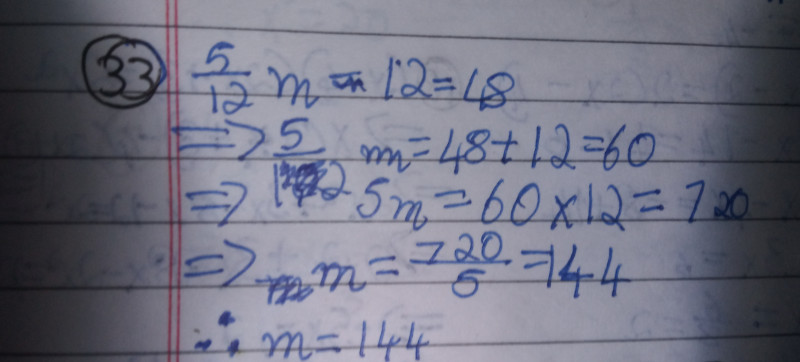 33 5/12 m - 12 = 48
=> 5/12 m = 48 + 12 = 60
=> 5m = 60 x 12 = 720
=> m = 720/5 = 144
∴ m = 144